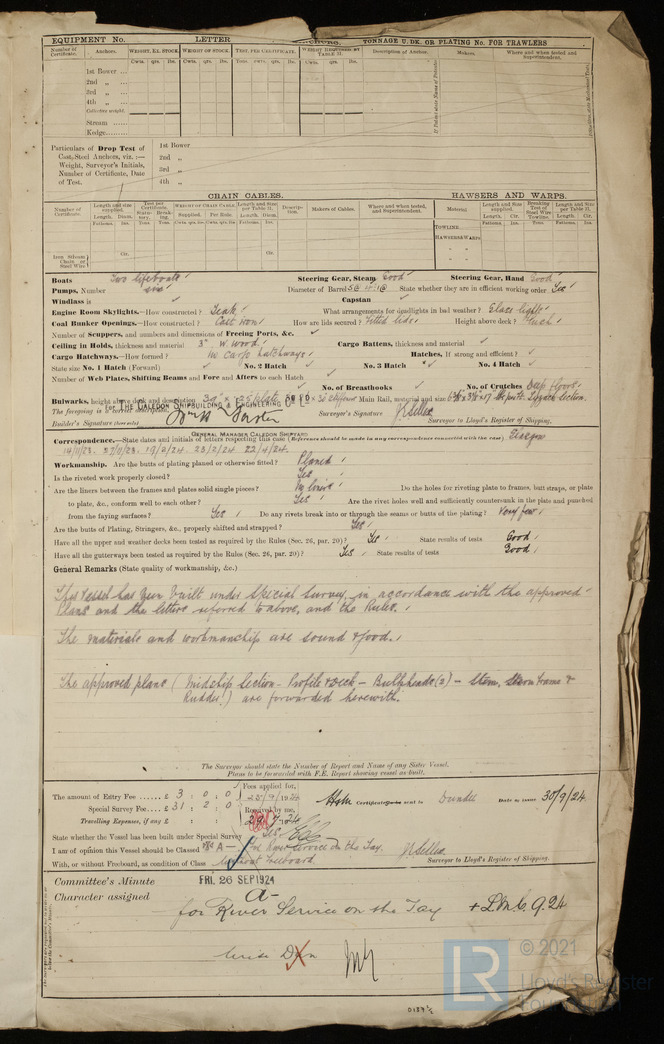 EQUIPMENT No. LETTER ANCHORS. TONNAGE U. DK. OR PLATING No. FOR TRAWLERS
Number of Certificate. Anchors. WEIGHT, EX. STOCK. WEIGHT OF STOCK. TEST, PER CERTIFICATE. WEIGHT REQUIRED BY TABLE 31. Description of Anchor. Makers. Where and when tested and Superintendent.
Cwts. qrs. lbs. Cwts. qrs. lbs. Tons. cwts. qrs. lbs. Cwts. qrs. lbs.
1st Bower ...
2nd „ ...
3rd „ ...
4th „ ...
Collective weight.
Stream ......
Kedge........
Particulars of Drop Test of Cast Steel Anchors, viz. :— Weight, Surveyor's Initials, Number of Certificate, Date of Test.
1st Bower
2nd „
3rd „
4th „
CHAIN CABLES. HAWSERS AND WARPS.
Number of Certificate. Length and size supplied. Test per Certificate. WEIGHT OF CHAIN CABLE. Length and Size per Table 31. Description. Makers of Cables. Where and when tested, and Superintendent. Material. Length and Size supplied. Breaking Test of Steel Wire Towline. Length and Size per Table 31.
Length. Diam. Statutory. Breaking. Supplied. Per Rule. Length. Diam. Length. Cir. Length. Cir.
Fathoms. Ins. Tons. Tons. Cwts. qrs. lbs. Cwts. qrs. lbs. Fathoms. Ins. Fathoms. Ins. Tons. Fathoms. Ins.
TOWLINE
HAWSERS & WARPS
Iron Stream Chain or Steel Wire Cir. Cir.
Boats Two lifeboats Steering Gear, Steam Good Steering Gear, Hand Good
Pumps, Number Diameter of Barrel State whether they are in efficient working order Yes
Windlass is ✓ Capstan ✓
Engine Room Skylights.—How constructed ? Teak What arrangements for deadlights in bad weather ? Glass lights
Coal Bunker Openings.—How constructed ? Cast iron How are lids secured ? lids Height above deck ?
Number of Scuppers, and numbers and dimensions of Freeing Ports, &c. ✓
Ceiling in Holds, thickness and material 3" W. wood Cargo Battens, thickness and material ✓
Cargo Hatchways.—How formed ? No cargo hatchways Hatches, If strong and efficient ? ✓
State size No. 1 Hatch (Forward) ✓ No. 2 Hatch ✓ No. 3 Hatch ✓ No. 4 Hatch ✓
Number of Web Plates, Shifting Beams and Fore and Afters to each Hatch ✓
No. of Breasthooks ✓ No. of Crutches Deep floors
Bulwarks, height above deck and description 39" Main Rail, material and size
The foregoing is a correct description For THE CALEDON SHIPBUILDING & ENGINEERING Co. Ld.
Builder's Signature (here write) Surveyor's Signature Surveyor to Lloyd's Register of Shipping.
GENERAL MANAGER CALEDON SHIPYARD
Correspondence.—State dates and initials of letters respecting this case (References should be made in any correspondence connected with the case). Glasgow
19/2/24. 23/2/24 22/4/24.
Workmanship. Are the butts of plating planed or otherwise fitted ? Planed
Is the riveted work properly closed ? Yes
Are the liners between the frames and plates solid single pieces ? No liners Do the holes for riveting plate to frames, butt straps, or plate
to plate, &c., conform well to each other ? Yes Are the rivet holes well and sufficiently countersunk in the plate and punched
from the faying surfaces ? Yes Do any rivets break into or through the seams or butts of the plating ? Very few
Are the butts of Plating, Stringers, &c., properly shifted and strapped ? Yes
Have all the upper and weather decks been tested as required by the Rules (Sec. 26, par. 20) ? Yes State results of tests Good
Have all the gutterways been tested as required by the Rules (Sec. 26, par. 20) ? Yes State results of tests Good
General Remarks (State quality of workmanship, &c.)
This Vessel has been built under Special Survey in accordance with the approved
Plans and the letters referred to above, and the Rules.
The materials and workmanship are sound & good.
The approved plans ( Midship Section - Profile & Deck - Bulkheads (2) - Stem, Stern frame &
Rudder ) are forwarded herewith.
The Surveyor should state the Number of Report and Name of any Sister Vessel.
Plans to be forwarded with F.E. Report showing vessel as built.
The amount of Entry Fee ...... £ 3 : 0 : 0 Fees applied for,
Special Survey Fee ... £ 31 : 2 : 0 25/9/1924 Certificate sent to Dundee Date 30/9/24
Travelling Expenses, if any £ : : Received by me,
State whether the Vessel has been built under Special Survey Yes
I am of opinion this Vessel should be Classed A — For River Service on the Tay.
With, or without Freeboard, as condition of Class Without Freeboard Surveyor to Lloyd's Register of Shipping.
Committee's Minute FRI. 26 SEP 1924
Character assigned A-
for River Service on the Tay + LMC 9.24
© 2021
LR
Lloyd's Register
Foundation